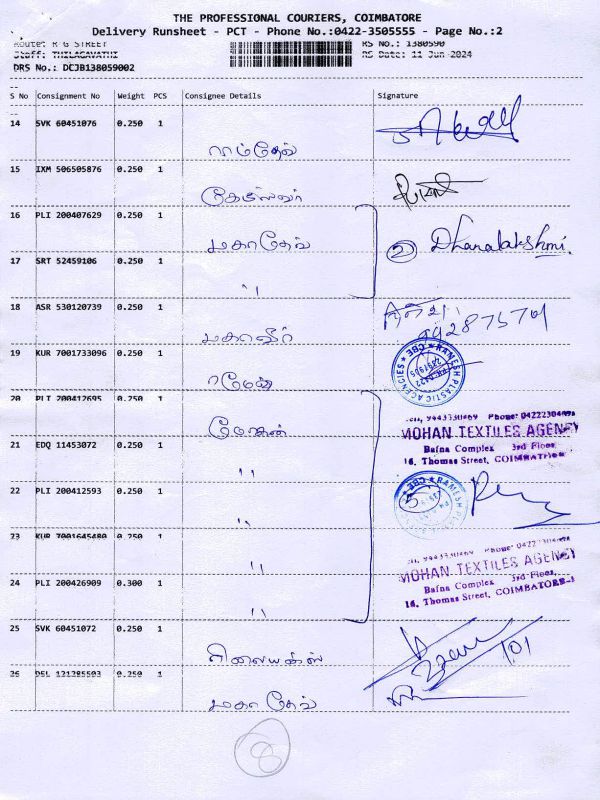 THE PROFESSIONAL COURIERS, COIMBATORE
Delivery Runsheet - PCT - Phone No.:0422-3505555 - Page No.:2
Route: R G STREET RS No.: 1380590
Staff: THILAGAVATHI RS Date: 11 Jun 2024
DRS No.: DCJB138059002
S No Consignment No Weight PCS Consignee Details Signature
14 SVK 60451076 0.250 1
ராம்தேவ்
15 IXM 506505876 0.250 1
16 PLI 200407629 0.250 1
மகாதேவ் 2 Dhanalakshmi.
17 SRT 52459106 0.250 1
"
18 ASR 530120739 0.250 1
மகாவீர்
19 KUR 7001733096 0.250 1
ரமேஷ் RAMESH PLASTIC AGENCIES CBE
20 PLI 200412695 0.250 1
மோகன் MOHAN TEXTILES AGENCY
Bafna Complex 3rd Floor,
16, Thomas Street, COIMBATORE
21 EDQ 11453072 0.250 1
"
22 PLI 200412593 0.250 1
"
23 KUR 7001645480 0.250 1
"
MOHAN TEXTILES AGENCY
24 PLI 200426909 0.300 1 Bafna Complex 3rd Floor,
" 16, Thomas Street, COIMBATORE-1
25 SVK 60451072 0.250 1
ரிலையன்ஸ் 101
26 DEL 121285503 0.250 1
மகாதேவ்
8